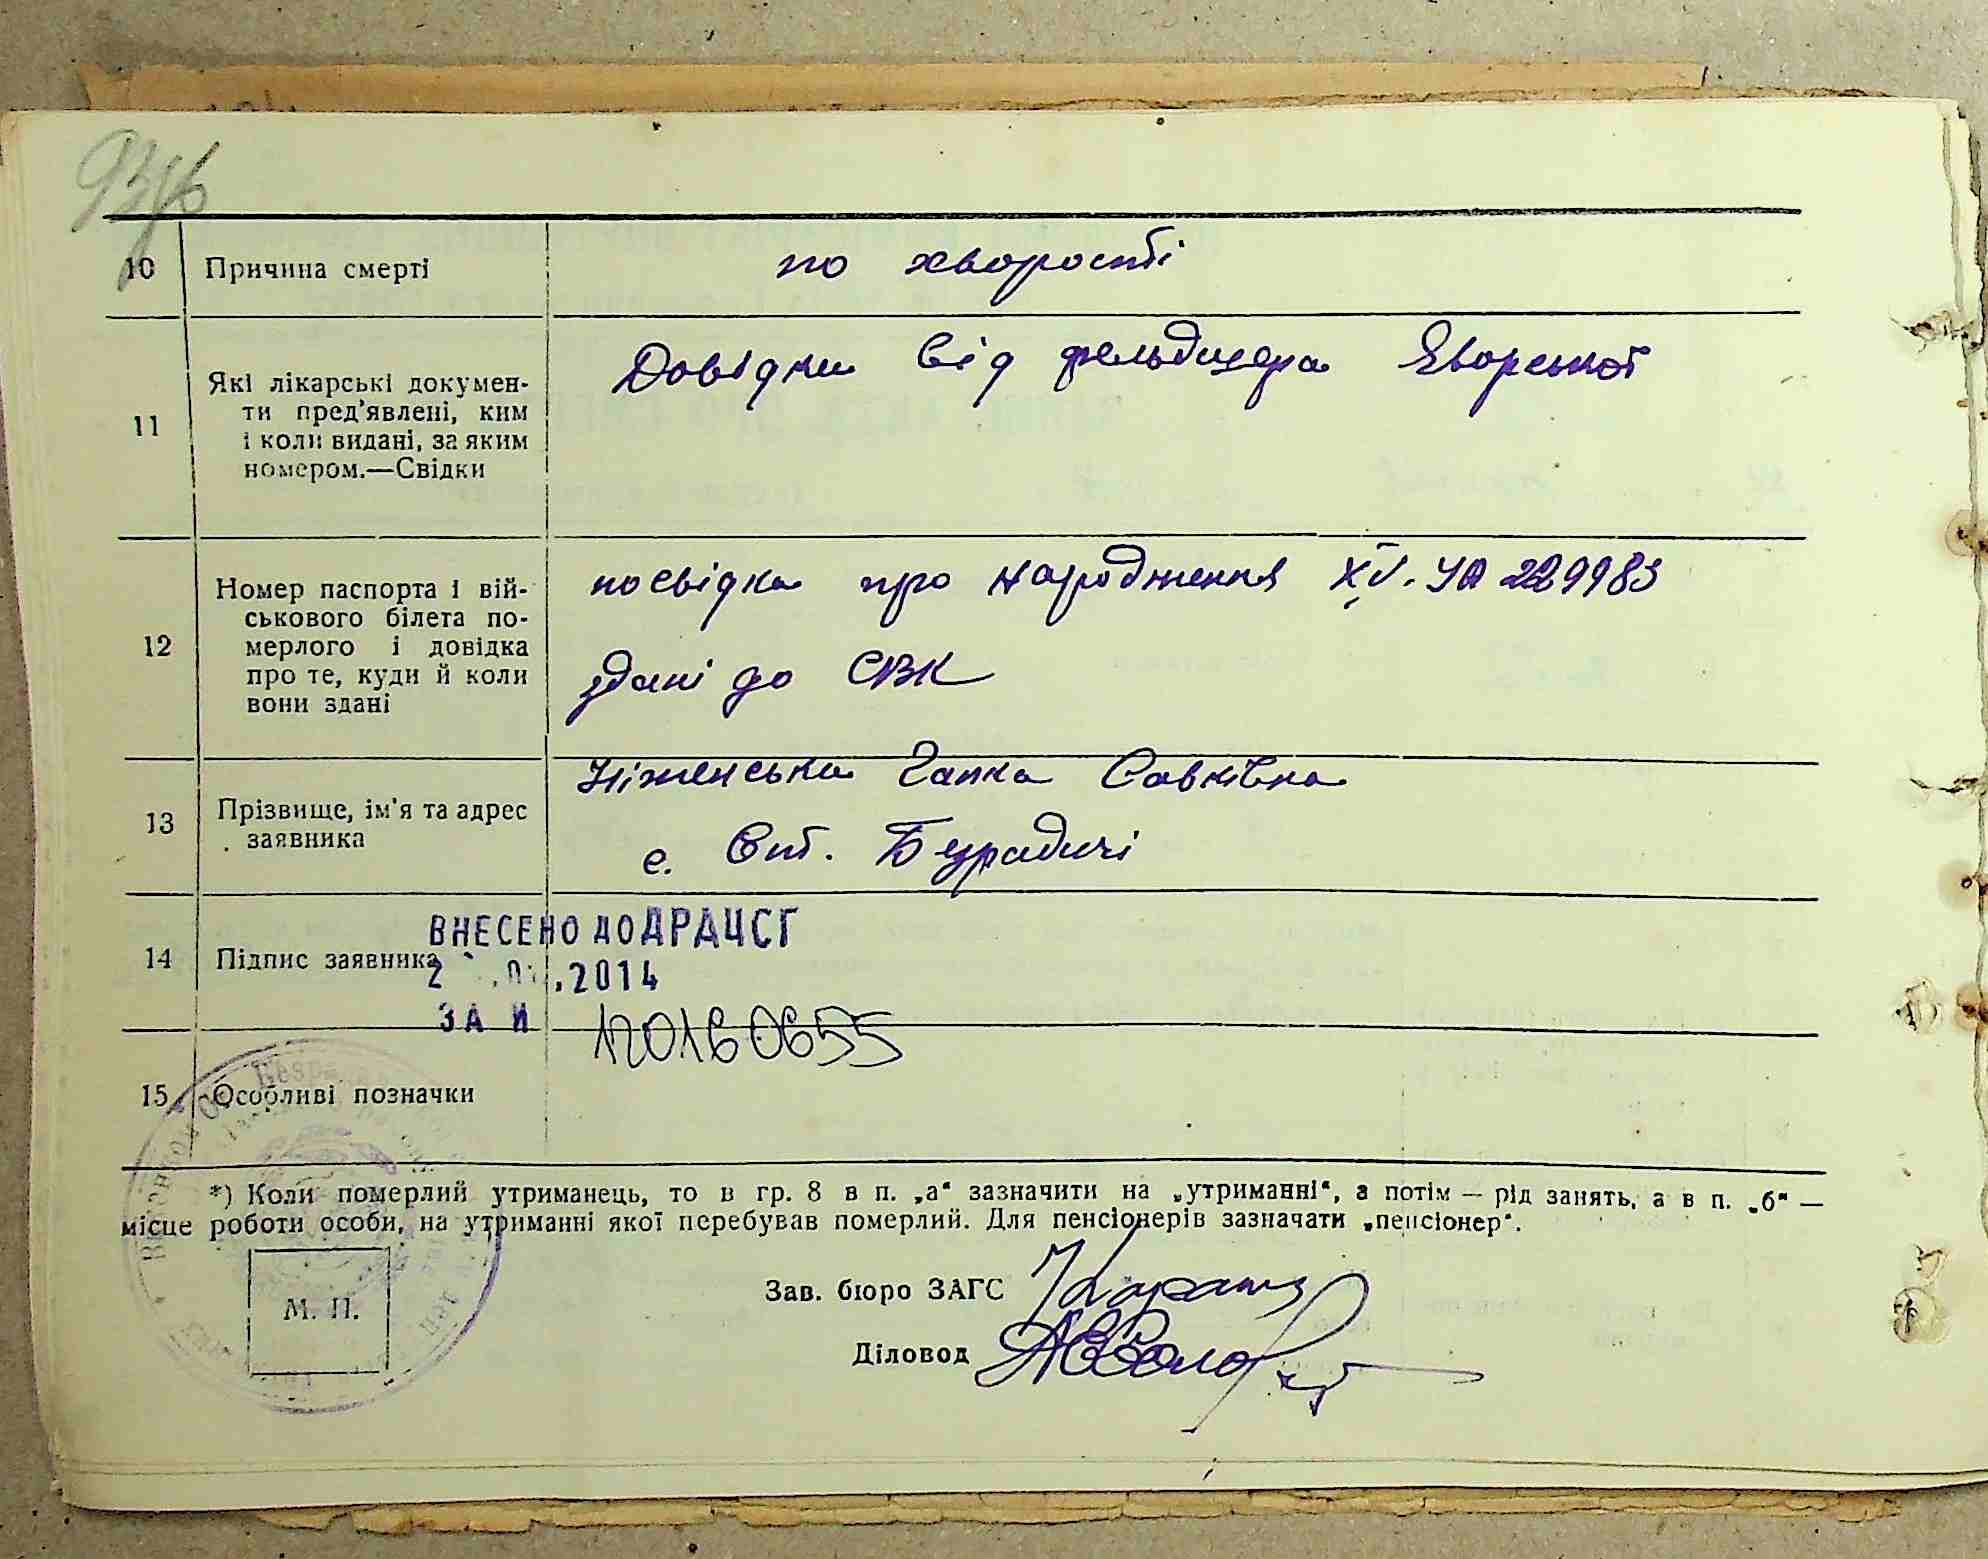 10 Причина смерті по хворості
11 Які лікарські докумен-
ти пред'явлені, ким
і коли видані, за яким
номером.—Свідки
Довідка від фельдшера Яворської
12 Номер паспорта і вій-
ськового білета по-
мерлого і довідка
про те, куди й коли
вони здані
посвідка про народження XV. УА 229983
здані до СВК
13 Прізвище, ім'я та адрес
заявника
Ніженська Гапка Савківна
с. Бзурадичі
14 Підпис заявника
ВНЕСЕНО ДО ДРАЦСГ
2014
ЗА И 120160655
15 Особливі позначки
*) Коли померлий утриманець, то в гр. 8 в п. „а“ зазначити на „утриманні“, а потім — рід занять, а в п. „б“ —
місце роботи особи, на утриманні якої перебував померлий. Для пенсіонерів зазначати „пенсіонер“.
М. П.
Зав. бюро ЗАГС
Діловод